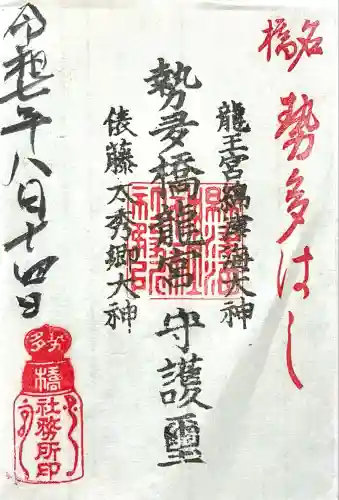 名橋
勢多はし
龍王宮綿津海大神
勢多橋龍宮守護璽
俵藤太秀郷大神
令和七年八月十四日
勢多
橋
社務所印